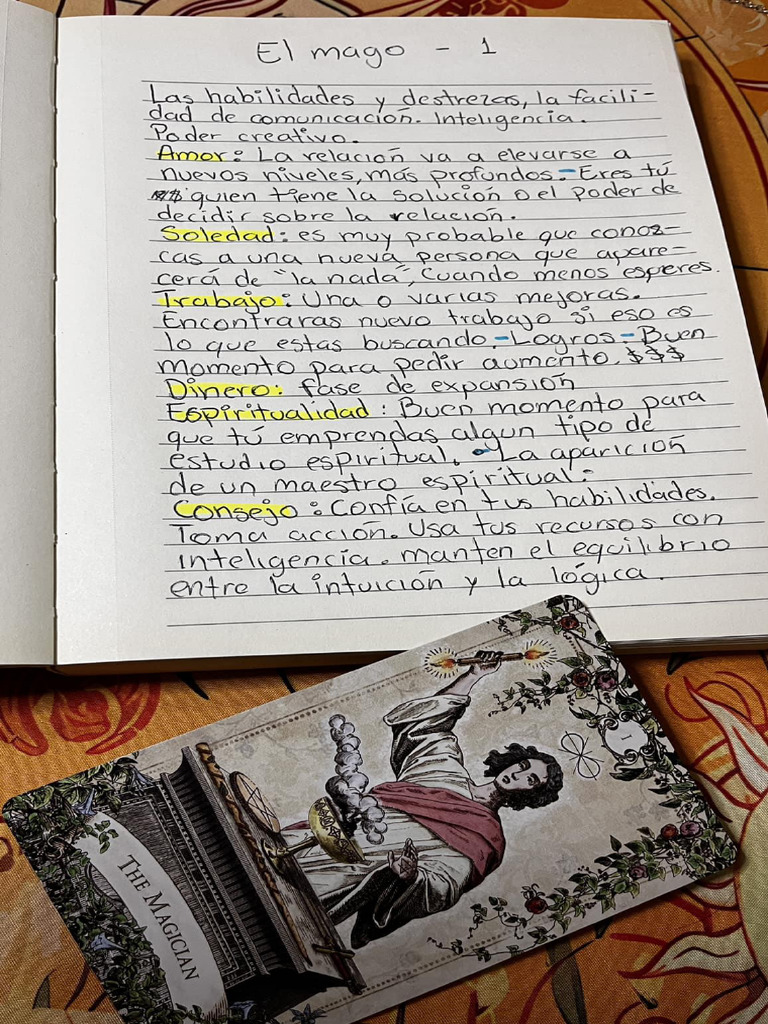 El mago - 1
Las habilidades y destrezas, la facili-
dad de comunicación. Inteligencia.
Poder creativo.
Amor: La relación va a elevarse a
nuevos niveles, más profundos.-Eres tú
quien tiene la solución o el poder de
decidir sobre la relación.
Soledad: es muy probable que conoz-
cas a una nueva persona que apare-
cerá de "la nada", cuando menos esperes.
Trabajo: Una o varias mejoras.
Encontraras nuevo trabajo si eso es
lo que estas buscando.-Logros-Buen
momento para pedir aumento. $$$
Dinero: fase de expansión
Espiritualidad: Buen momento para
que tú emprendas algun tipo de
estudio espiritual. -La aparición
de un maestro espiritual.
Consejo: Confía en tus habilidades.
Toma acción. Usa tus recursos con
inteligencia. manten el equilibrio
entre la intuición y la lógica.
I
THE MAGICIAN